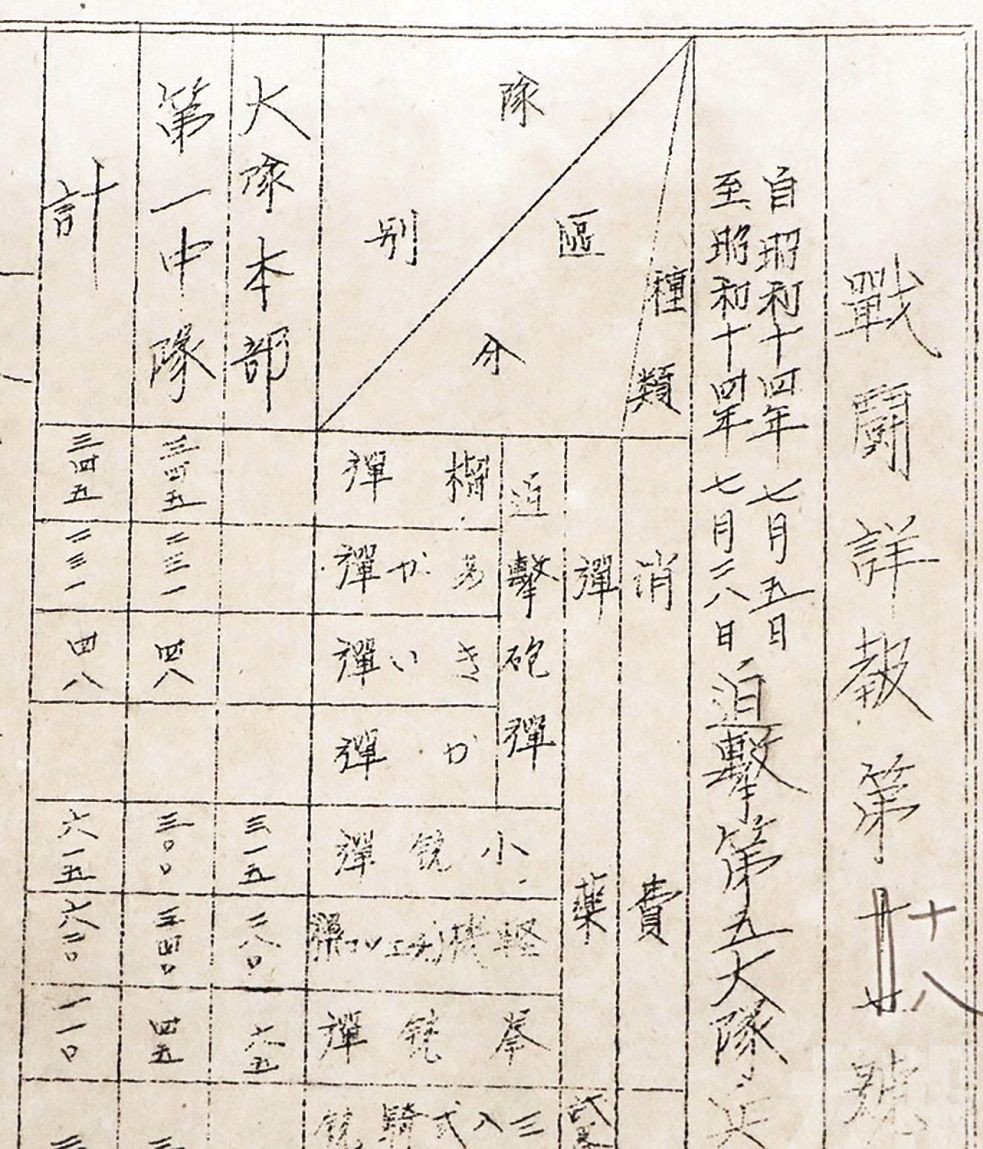 戰鬪詳報第十八號
自昭和十四年七月五日
至昭和十四年七月二八日
迫擊第五大隊
種類
區分
隊別
消費
彈藥
迫擊砲彈
榴彈
あか彈
きい彈
か彈
小銃彈
輕機
拳銃彈
三八式騎銃
大隊本部
三一五
二八〇
六五
第一中隊
三四五
二三一
四八
三〇〇
三四〇
四五
計
三四五
二三一
四八
六一五
六二〇
一一〇